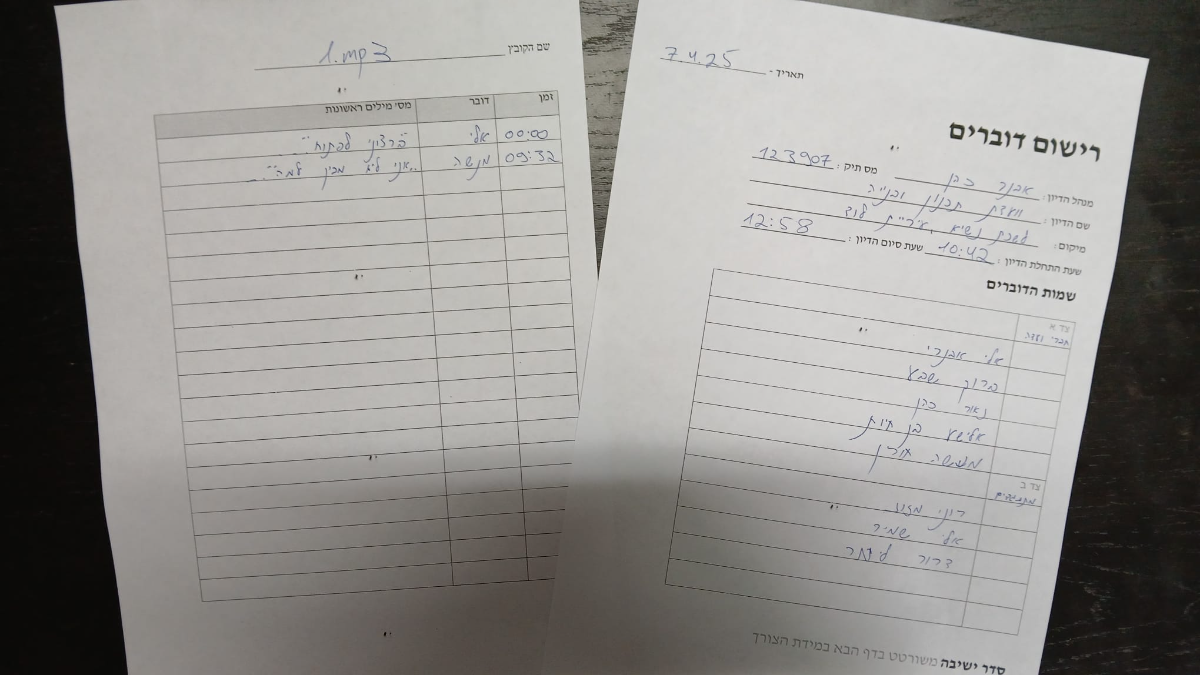 תאריך - 7.4.25
רישום דוברים
מנהל הדיון: אבנר כהן מס תיק: 123907
שם הדיון: וועדת תכנון ובנייה
מיקום: לשכת נשיא, עיריית לוד
שעת התחלת הדיון: 10:42 שעת סיום הדיון: 12:58
שמות הדוברים
צד א
חברי ועדה
אלי אבנרי
ברוך שבע
נאור כהן
אלישע בן חיות
מנשה אורן
צד ב
מתנגדים
רוני מזוז
אלי שמיר
דרור ליתר
סדר ישיבה משורטט בדף הבא במידת הצורך
שם הקובץ 1.mp3
זמן דובר מס' מילים ראשונות
00:00 אלי "ברצוני לפתוח"...
09:32 מנשה "אני לא מבין למה"...